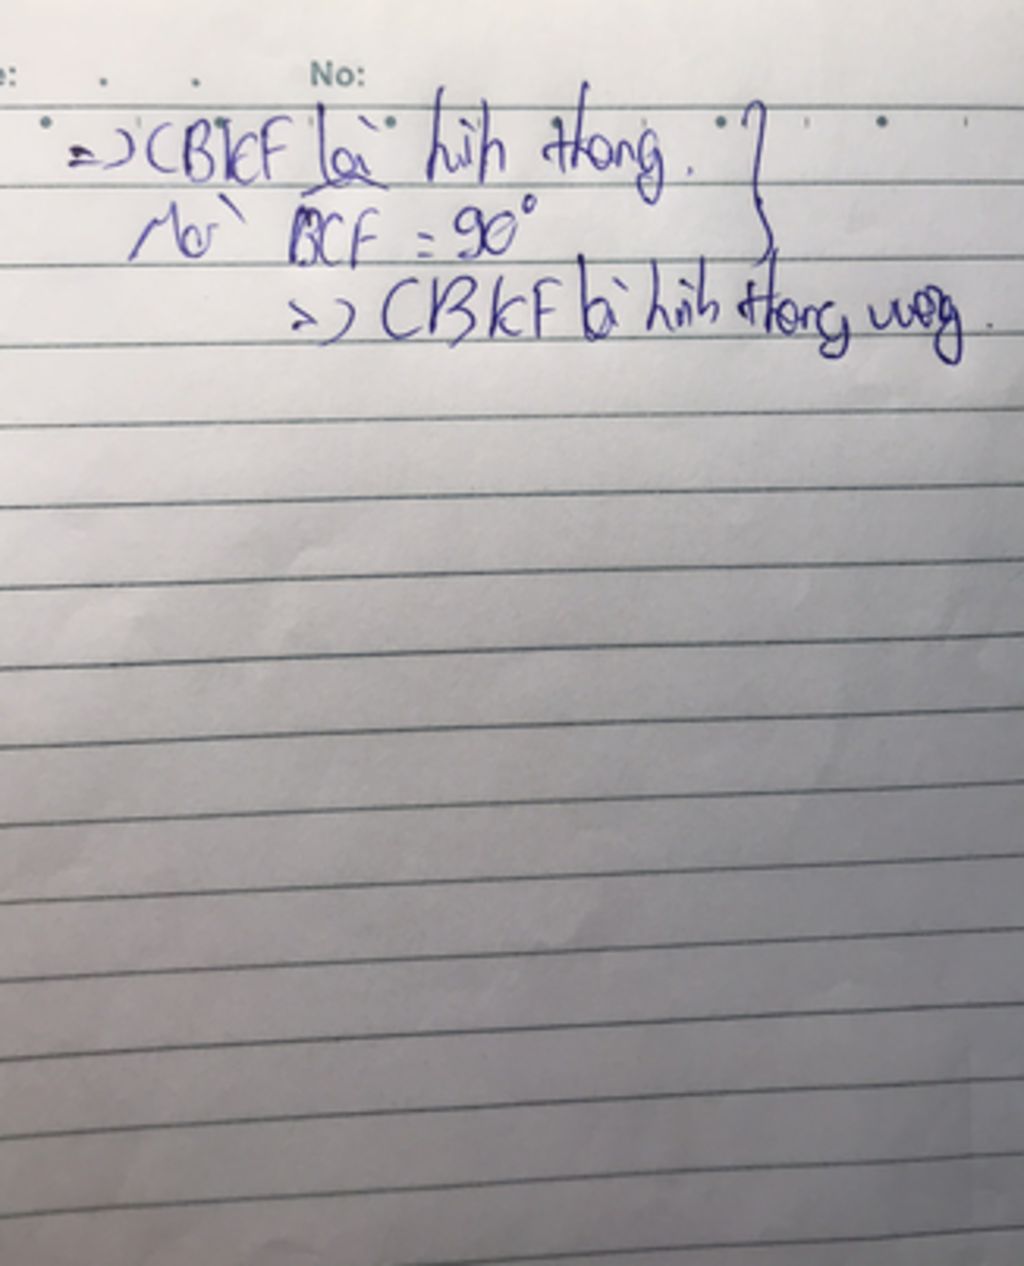 e: . . No:
=> CBKF là hình thang.
Mà BCF = 90°
=> CBKF là hình thang vuông.